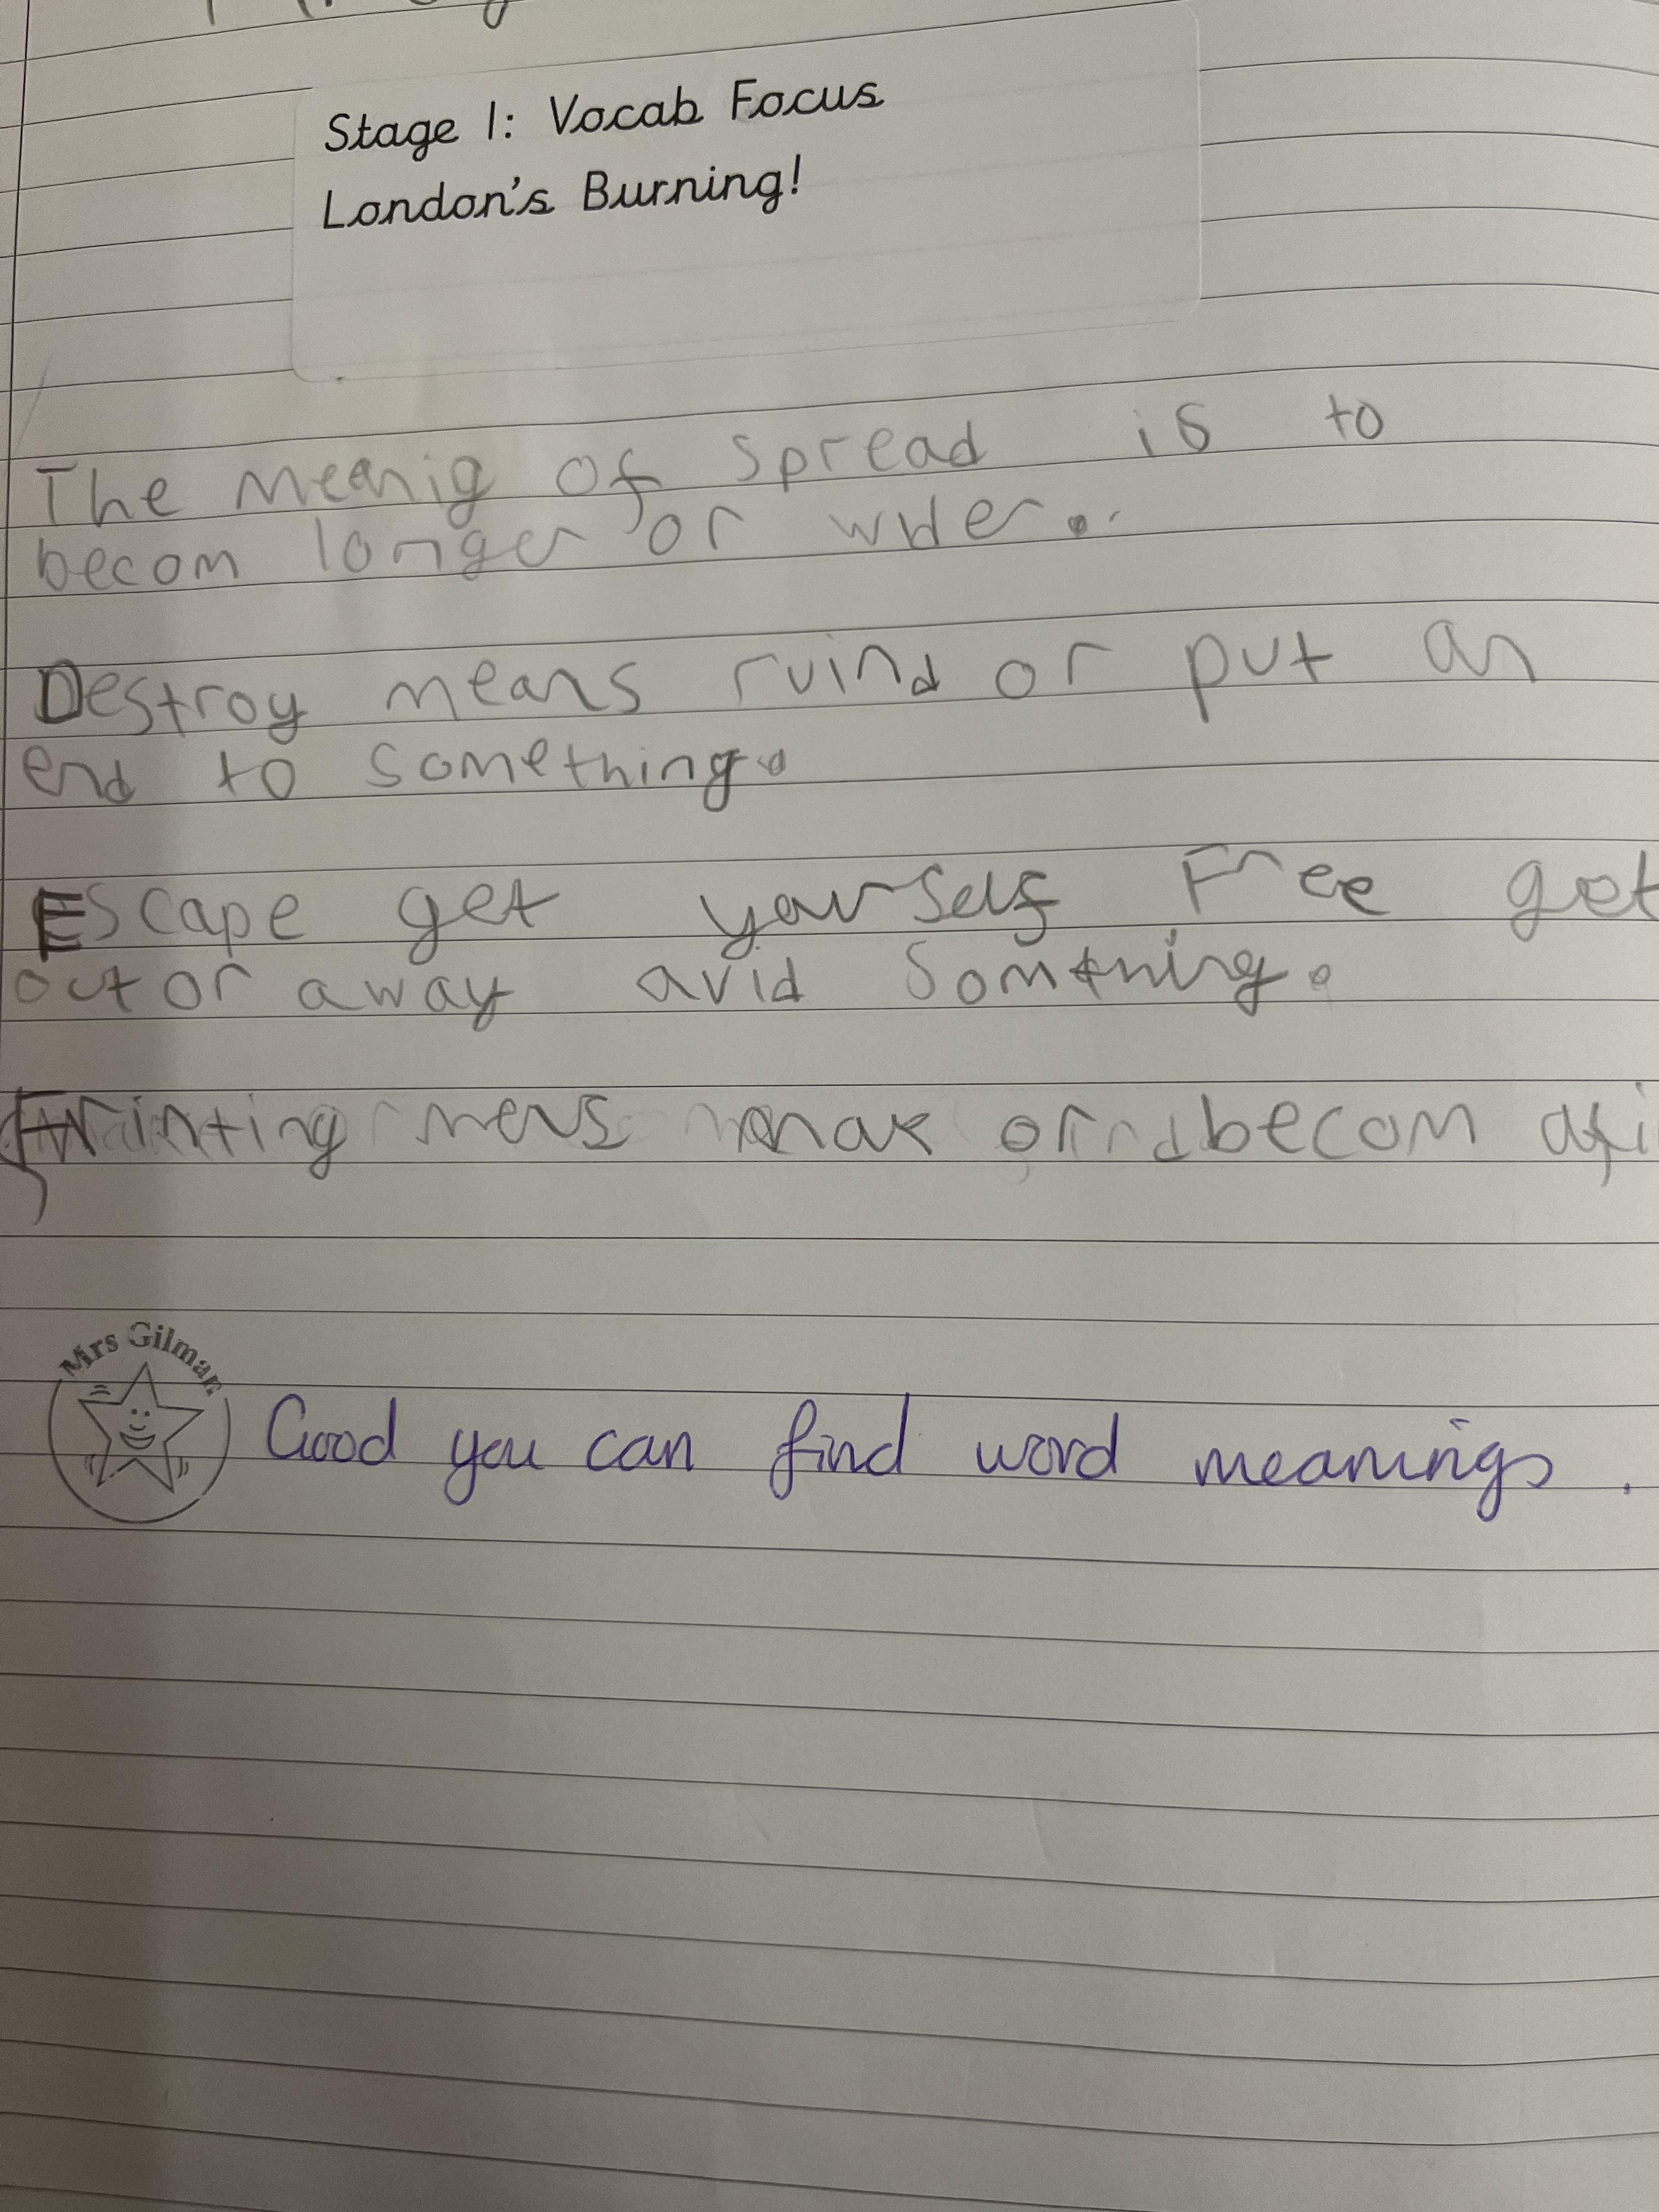 Stage 1: Vocab Focus
London's Burning!
The meanig of spread is to
becom longer or wider..
Destroy means ruind or put an
end to something.
Escape get yourself Free get
out or away avid Somthing.
mens mak or becom
Mrs Gilman
Good you can find word meanings.